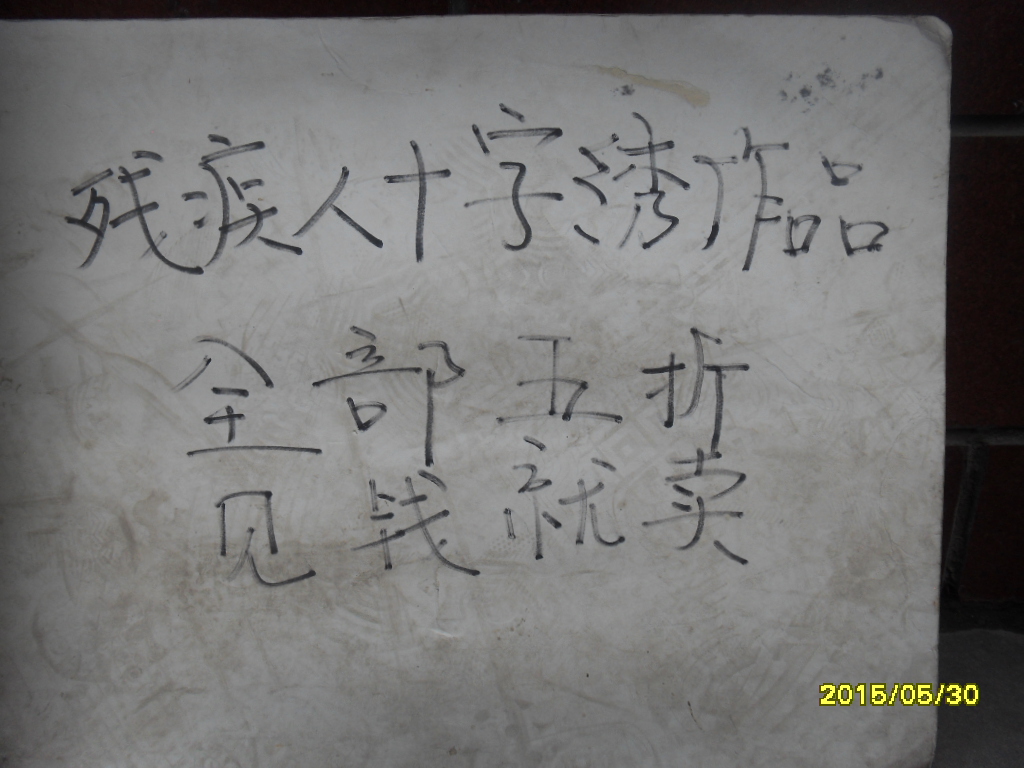 残疾人十字绣作品
全部五折
见钱就卖
2015/05/30